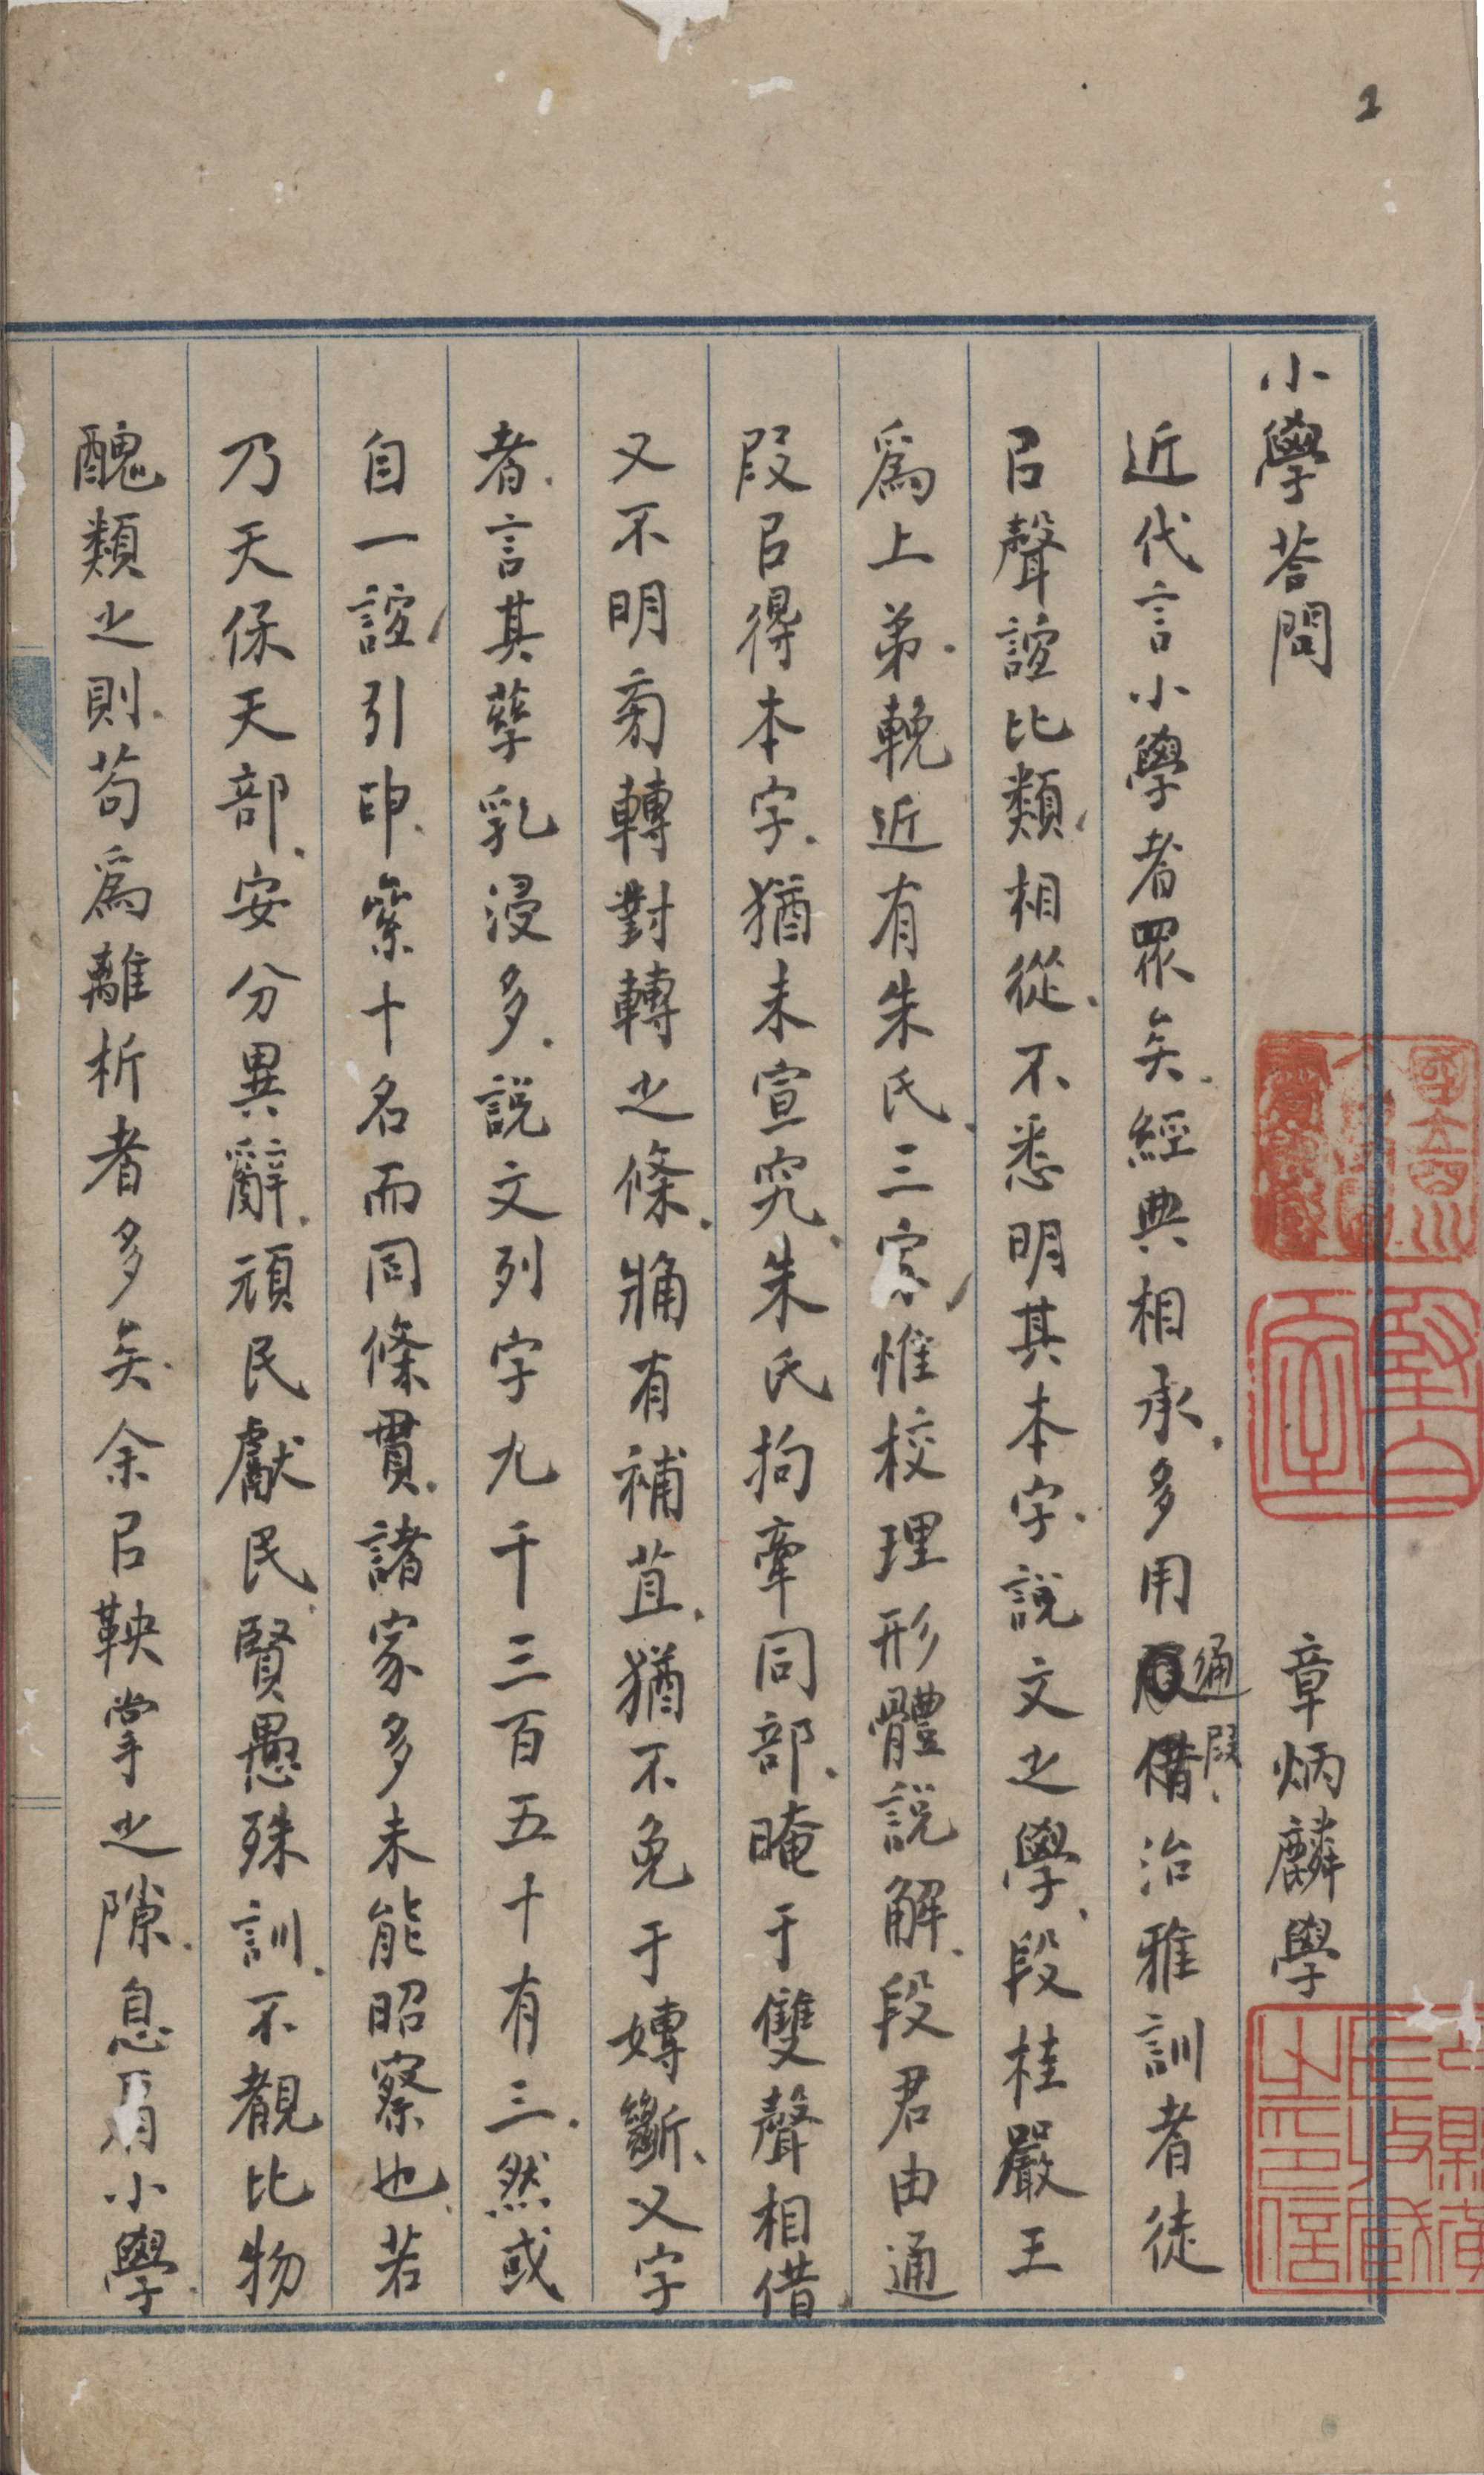 1
小學荅問 章炳麟學
近代言小學者眾矣經典相承多用通叚借治雅訓者徒
㠯聲誼比類相從不悉明其本字說文之學段桂嚴王
爲上弟輓近有朱氏三家惟校理形體說解段君由通
叚㠯得本字猶未宣究朱氏拘牽同部晻于雙聲相借
又不明旁轉對轉之條牏有補苴猶不免于專斷又字
者言其孳乳浸多說文列字九千三百五十有三然或
自一誼引申絫十名而同條貫諸家多未能昭察也若
乃天保天部安分異辭頑民獻民賢愚殊訓不覩比物
醜類之則茍爲離析者多矣余㠯鞅掌之隙息肩小學